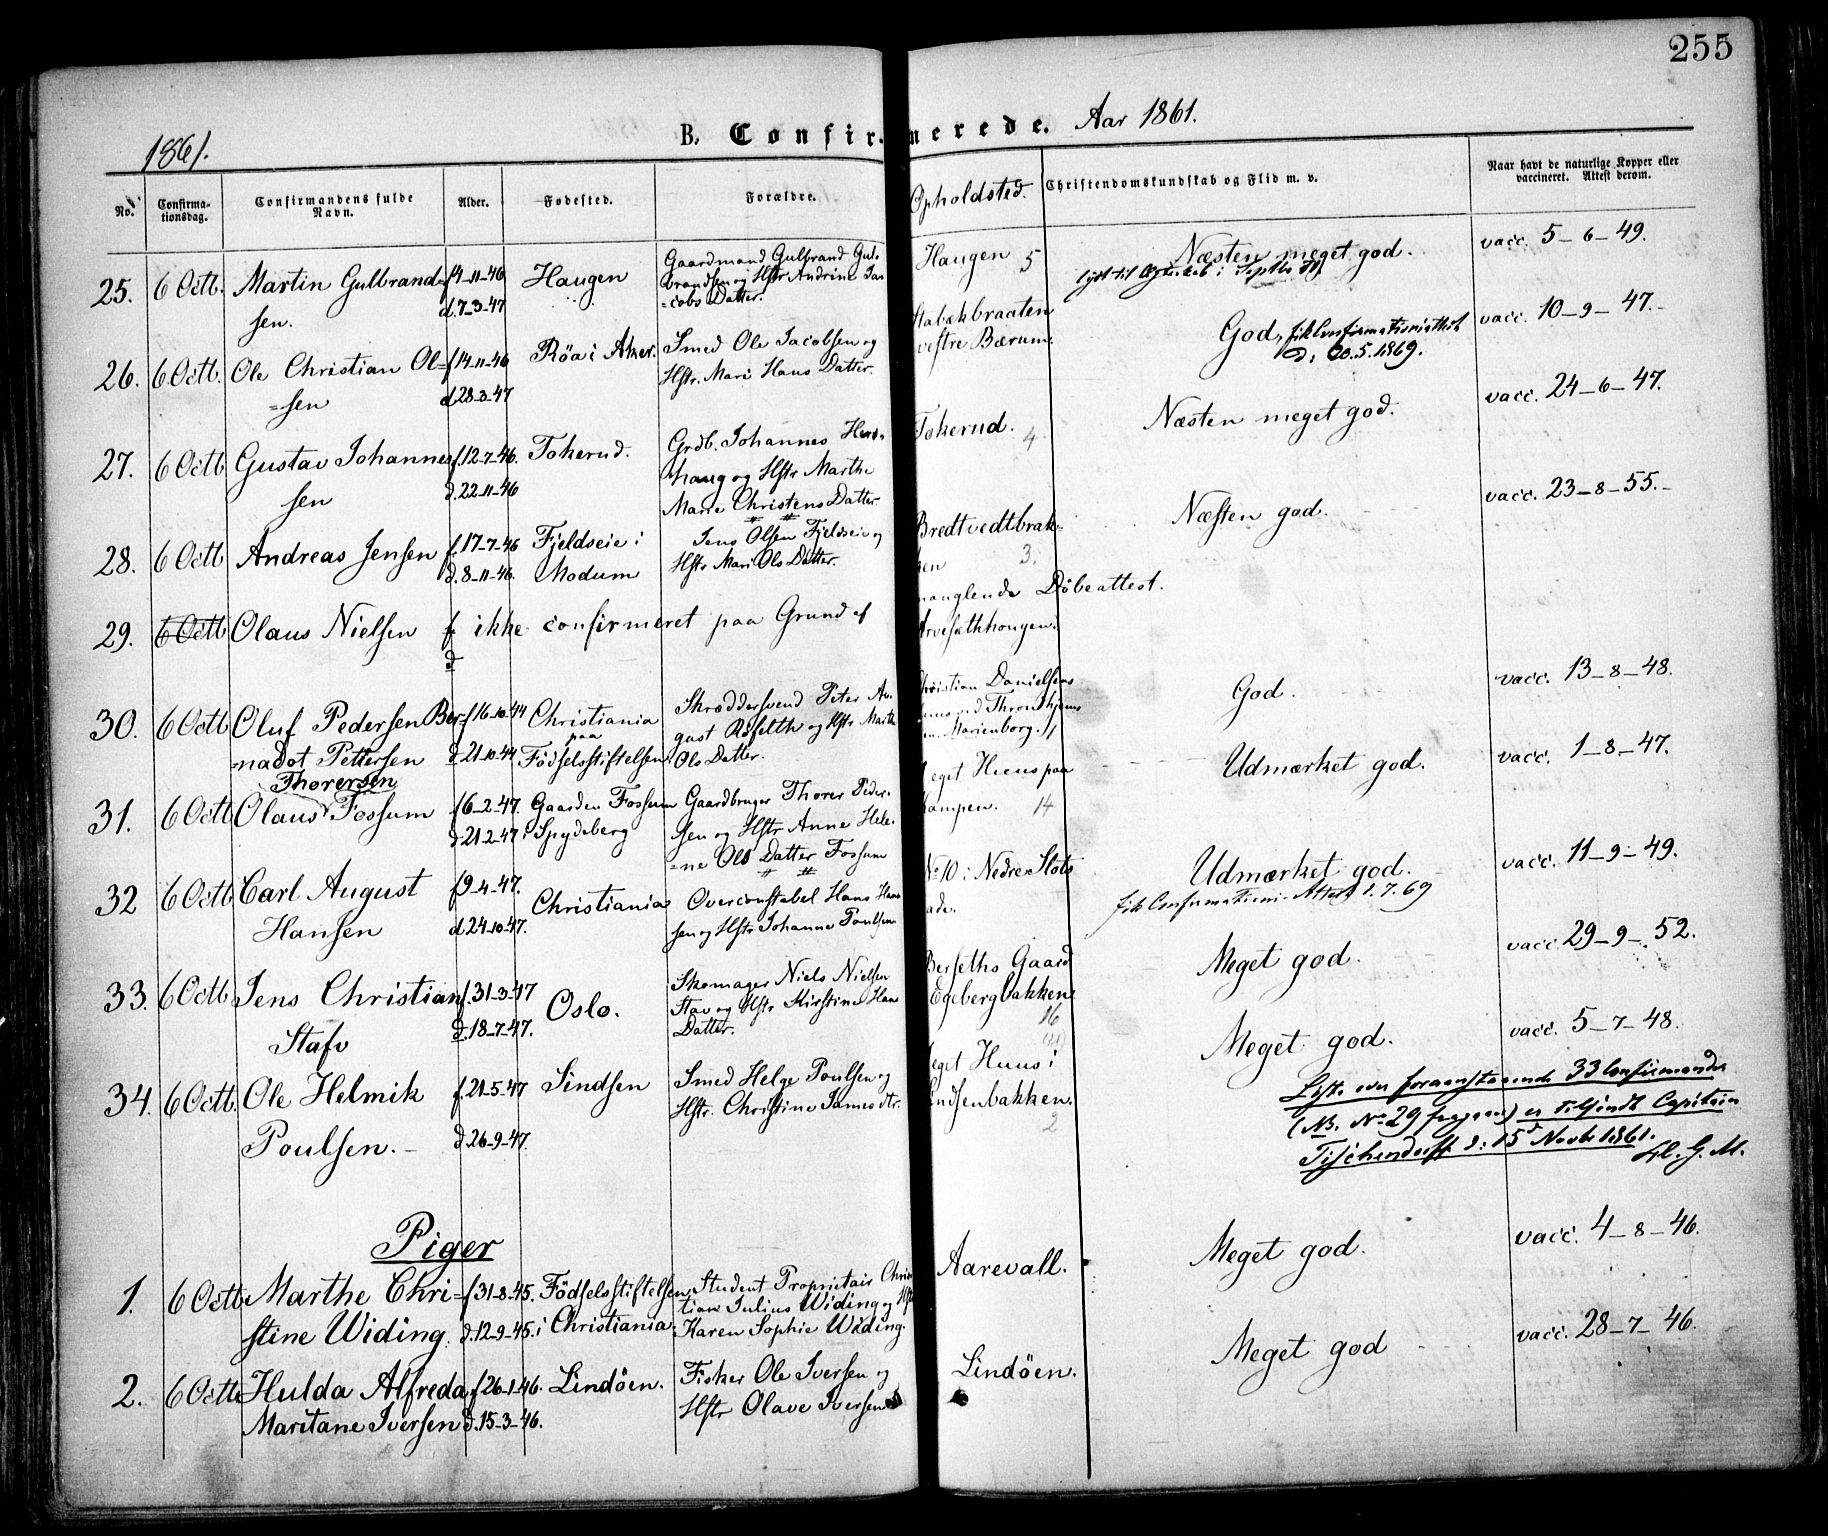 255
1861.
B. Confirmerede. Aar 1861.
No.
Confirmationsdag.
Confirmandens fulde Navn.
Alder.
Fødested.
Forældre.
Opholdsted.
Christendomskundskab og Flid m. v.
Naar havt de naturlige Kopper eller vaccineret. Attest derom.
25. 6 Octb. Martin Gulbrand- f 4-11-46 Haugen Gaardmand Gulbrand Gul- Haugen 5 Næsten meget god. vacc. 5-6-49.
sen. d. 7-3-47 brandsen og Hstr Andrine Ja-
=cobs Datter.
26. 6 Octb. Ole Christian Ol= f 14-11-46 Røa i Aker. Smed Ole Jacobsen og Stabækbraaten God, fik Confirmationsattest vacc. 10-9-47.-
=sen d 28-3-47 Hstr. Mari Hans Datter. vestre Bærum. d. 20.5.1869.
27. 6 Octb Gustav Johannes f. 12-7-46. Tokerud. Grdb. Johannes Tokerud. 4 Næsten meget god. vacc. 24-6-47.
sen d. 22-11-46 haug og Hstr Marthe
Marie Christens Datter.
28. 6 Octb Andreas Jensen f. 17-7-46 Fjeldseie i Jens Olsen Fjeldseie og Bredtvedtbrak- Næsten god. vacc. 23-8-55.-
d. 8-11-46. Modum Hstr Mari Ols Datter. ken 3.
29. 6 Octb Olaus Nielsen f ikke confirmeret paa Grund af manglende Döbeattest.
d
30. 6 Octb Oluf Pedersen Ber= f 16-10-44 Christiania Skræddersvend Peter Au- Christian Danielsens God. vacc. 13-8-48.
=nadot Pettersen d. 21-10-44 paa Födselsstiftelsen. gust Roselth og Hstr Marthe Ols Datter. Huus ved Throndhjems Marienborg. 11
Thorersen
31. 6 Octb Olaus Fossum f 6-2-47. Gaarden Fossum Gaardbruger Thorer Peder- eget Huus paa Udmærket god. vacc. 1-8-47.
d. 21-2-47 i Spydeberg sen og Hstr Anne Hele- Kampen. 14
=ne Ols Datter Fossum
32 6 Octb Carl August f 9-4-47. Christiania Overconstabel Hans Han- No 10 i Nedre Slots Udmærket god. vacc. 11-9-49.
Hansen d. 24-10-47. sen og Hstr Johanne Poulsen gade. fik Confirmations-Attest 1.7.69
33. 6 Octb Jens Christian f. 31-3-47 Oslo. Skomager Niels Nielsen Berseths Gaard Meget god. vacc 29-9-52.
Stafv d. 18-7-47. Stav og Hstr Kirstine Hans Datter. Egebergbakken 16
34. 6 Octb. Ole Helmik f. 21-5-47 Sindsen Smed Helge Poulsen og eget Huus i Meget god. vacc. 5-7-48.
Poulsen.- d. 26-9-47. Hstr. Christine Jamesdtr. Sindsenbakken. 2
Liste over foranstaaende 33 Confirmander
(NB. No 29 fragaaer) er tilsendt Capitain
Tischendorff d: 15d Novbr 1861.
H. G. M.
Piger
1. 6 Octb Marthe Chri= f 31-8-45. Födselsstiftelsen Student Proprietair Chris- Aarevall. Meget god. vacc. 4-8-46.
stine Widing. d. 12-9-45. i Christiania. tian Julius Widing og Hstr
Karen Sophie Widing.
2. 6 Octb Hulda Alfreda f 26-1-46. Lindöen. Fisker Ole Iversen og Lindöen. Meget god vacc. 28-7-46.
Maritane Iversen d. 15-3-46. Hstr Olave Iversen